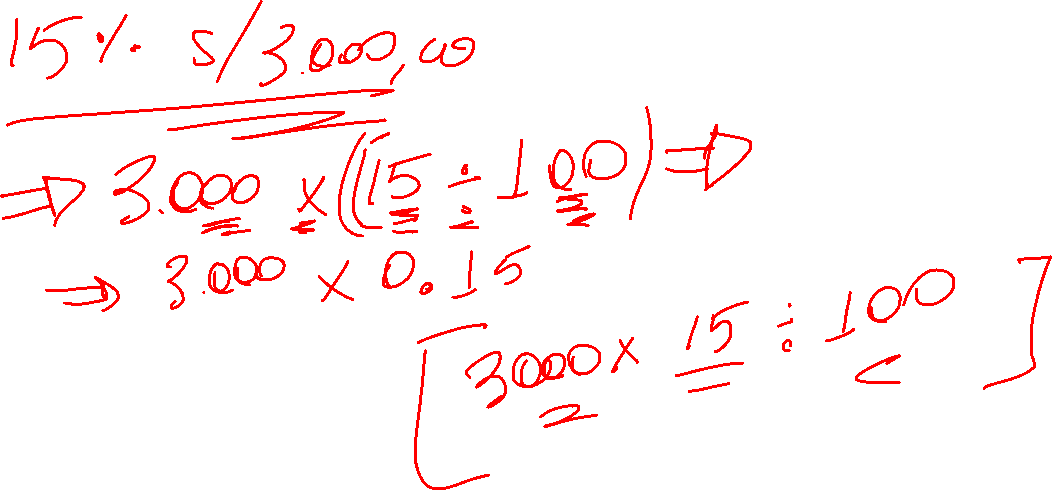 15% s/3.000,00
⇒ 3.000 x (15 ÷ 100) ⇒
⇒ 3.000 x 0.15
[3000 x 15 ÷ 100]